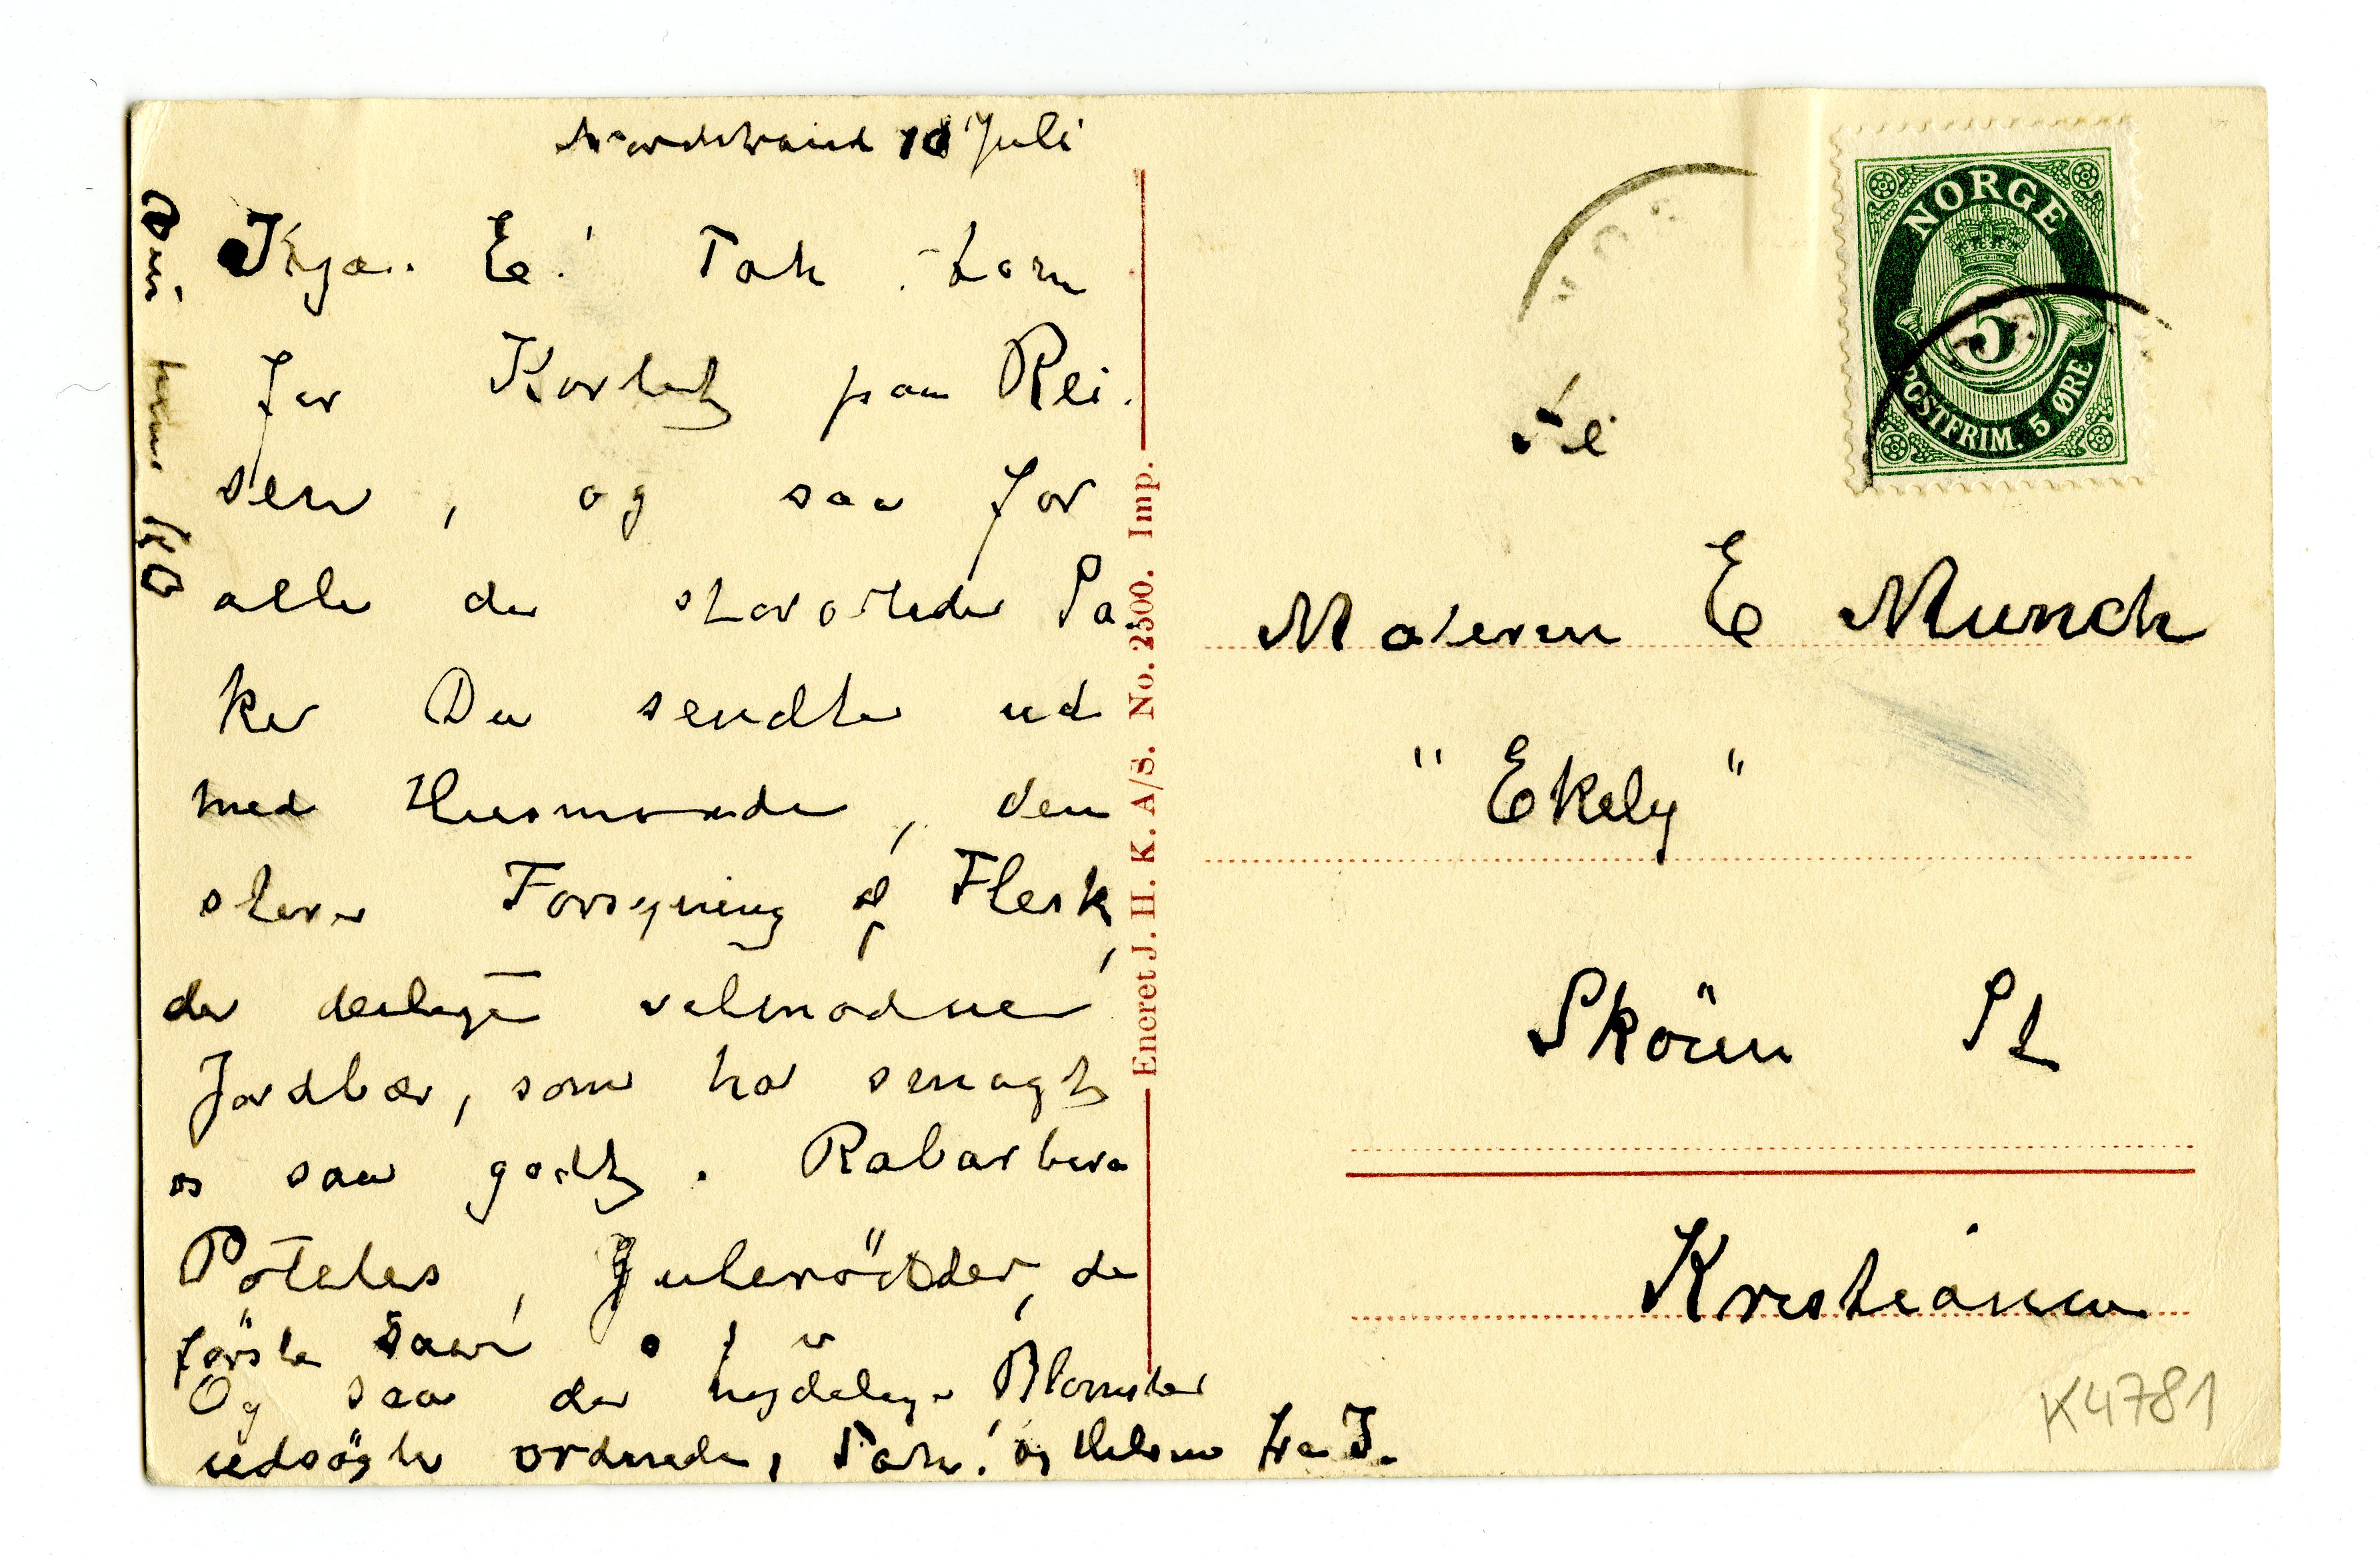 Nordstrand 10 Juli
Kjære E! Tak
for Kortet paa Rei-
sen, og saa for
alle de storartede Sa-
ker Du sendte ud
med Husmonde, den
store Forsyning af Flesk,
de deilige velmodne
Jordbær, som har smagt
os saa godt. Rabarbara
Poteter, Gulerödder, de
förste
Og saa de nydelige Blomster
udsögte ordnede, Tak! og Hilsen fra I.
Din KB
Hr
Maleren E Munch
"Ekely"
Sköien St
Kristiania
NORGE
5
POSTFRIM. 5 ØRE
Eneret J. H. K. A/S. No. 2500. Imp.
K4781